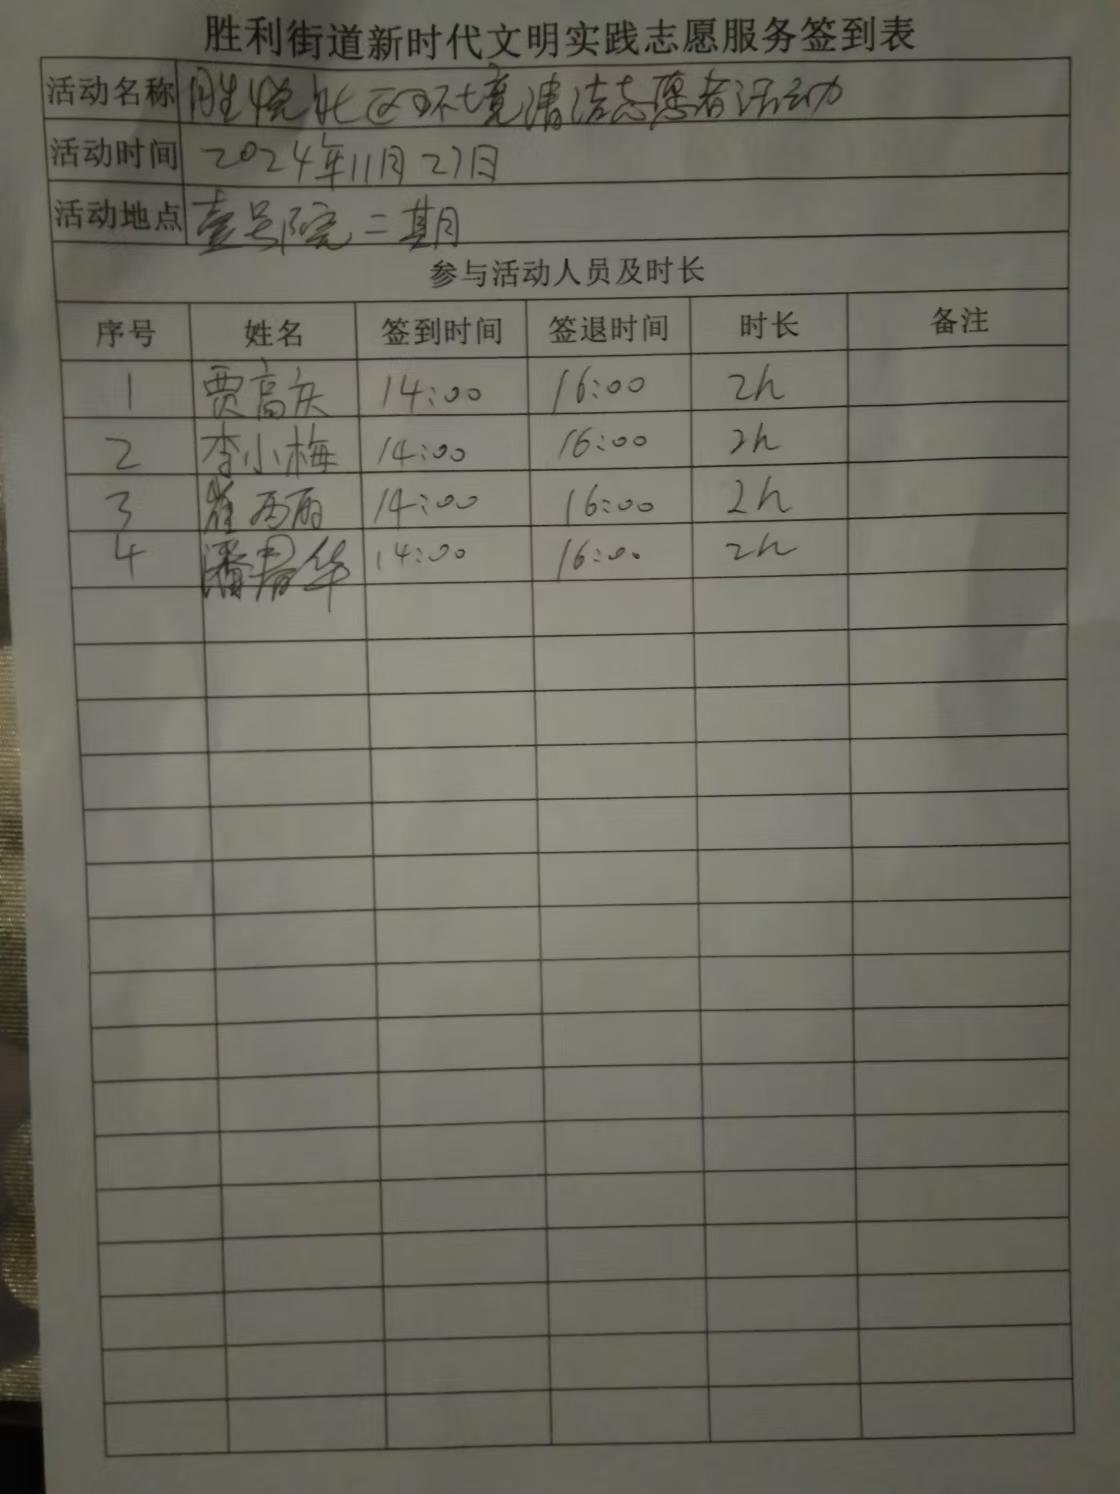 胜利街道新时代文明实践志愿服务签到表
活动名称 胜悦社区环境清洁志愿者活动
活动时间 2024年11月27日
活动地点 壹号院二期
参与活动人员及时长
序号 姓名 签到时间 签退时间 时长 备注
1 贾高庆 14:00 16:00 2h
2 李小梅 14:00 16:00 2h
3 崔丽 14:00 16:00 2h
4 潘华 14:00 16:00 2h